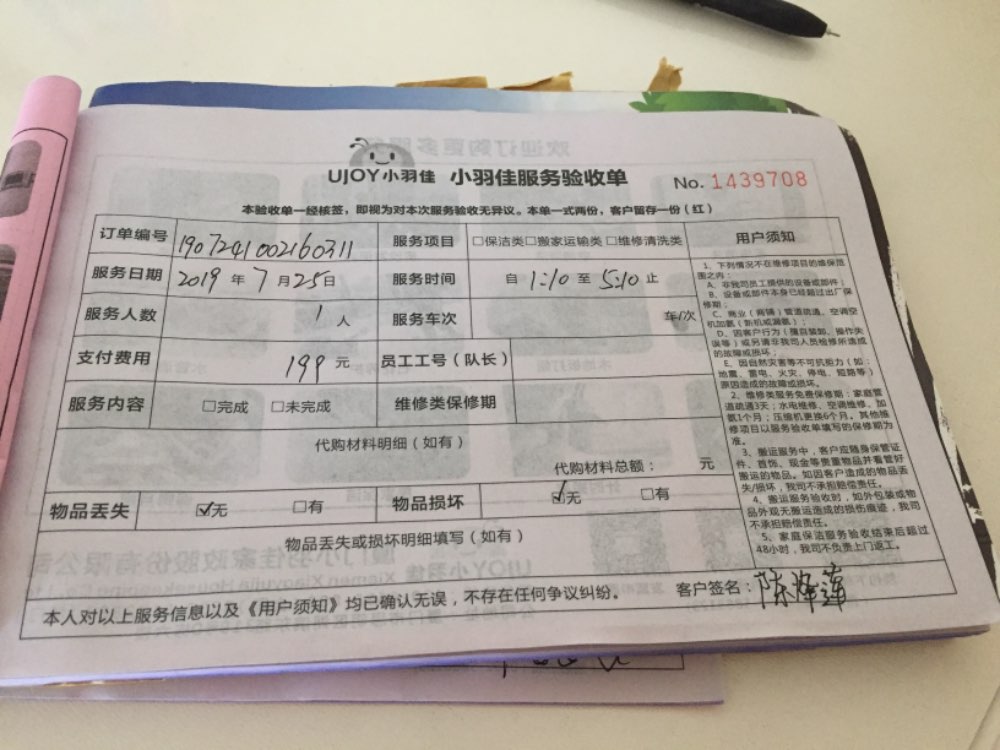 UJOY小羽佳 小羽佳服务验收单 No. 1439708
本验收单一经核签，即视为对本次服务验收无异议。本单一式两份，客户留存一份（红）
订单编号 1907241002160311 服务项目 □保洁类□搬家运输类□维修清洗类
服务日期 2019 年 7 月 25 日 服务时间 自 1:10 至 5:10 止
服务人数 1 人 服务车次 车/次
支付费用 199 元 员工工号（队长）
服务内容 □完成 □未完成 维修类保修期
代购材料明细（如有）
代购材料总额： 元
物品丢失 ☑无 □有 物品损坏 ☑无 □有
物品丢失或损坏明细填写（如有）
本人对以上服务信息以及《用户须知》均已确认无误，不存在任何争议纠纷。 客户签名：
用户须知
1、下列情况不在维修项目的维保范
围之内：
A、非我司员工提供的设备或部件；
B、设备或部件本身已经超过出厂保
修期；
C、商业（商铺）管道疏通、空调空
机加氨（拆机或漏氨）；
D、因客户行为（擅自装卸、操作失
误等）或另请非我司人员检修所造成
的故障或损坏；
E、因自然灾害等不可抗能力（如：
地震、雷电、火灾、停电、短路等）
原因造成的故障或损坏。
2、维修类服务免费保修期：家庭管
道疏通3天；水电维修、空调维修、加
氨1个月；压缩机更换6个月。其他维
修项目以服务验收单填写的保修期为
准。
3、搬运服务中，客户应随身保管证
件、首饰、现金等贵重物品并看管好
搬运的物品。如因客户造成的物品丢
失/损坏，我司不承担赔偿责任。
4、搬运服务验收时，如外包装或物
品外观无搬运造成的损伤痕迹，我司
不承担赔偿责任。
5、家庭保洁服务验收结束后超过
48小时，我司不负责上门返工。